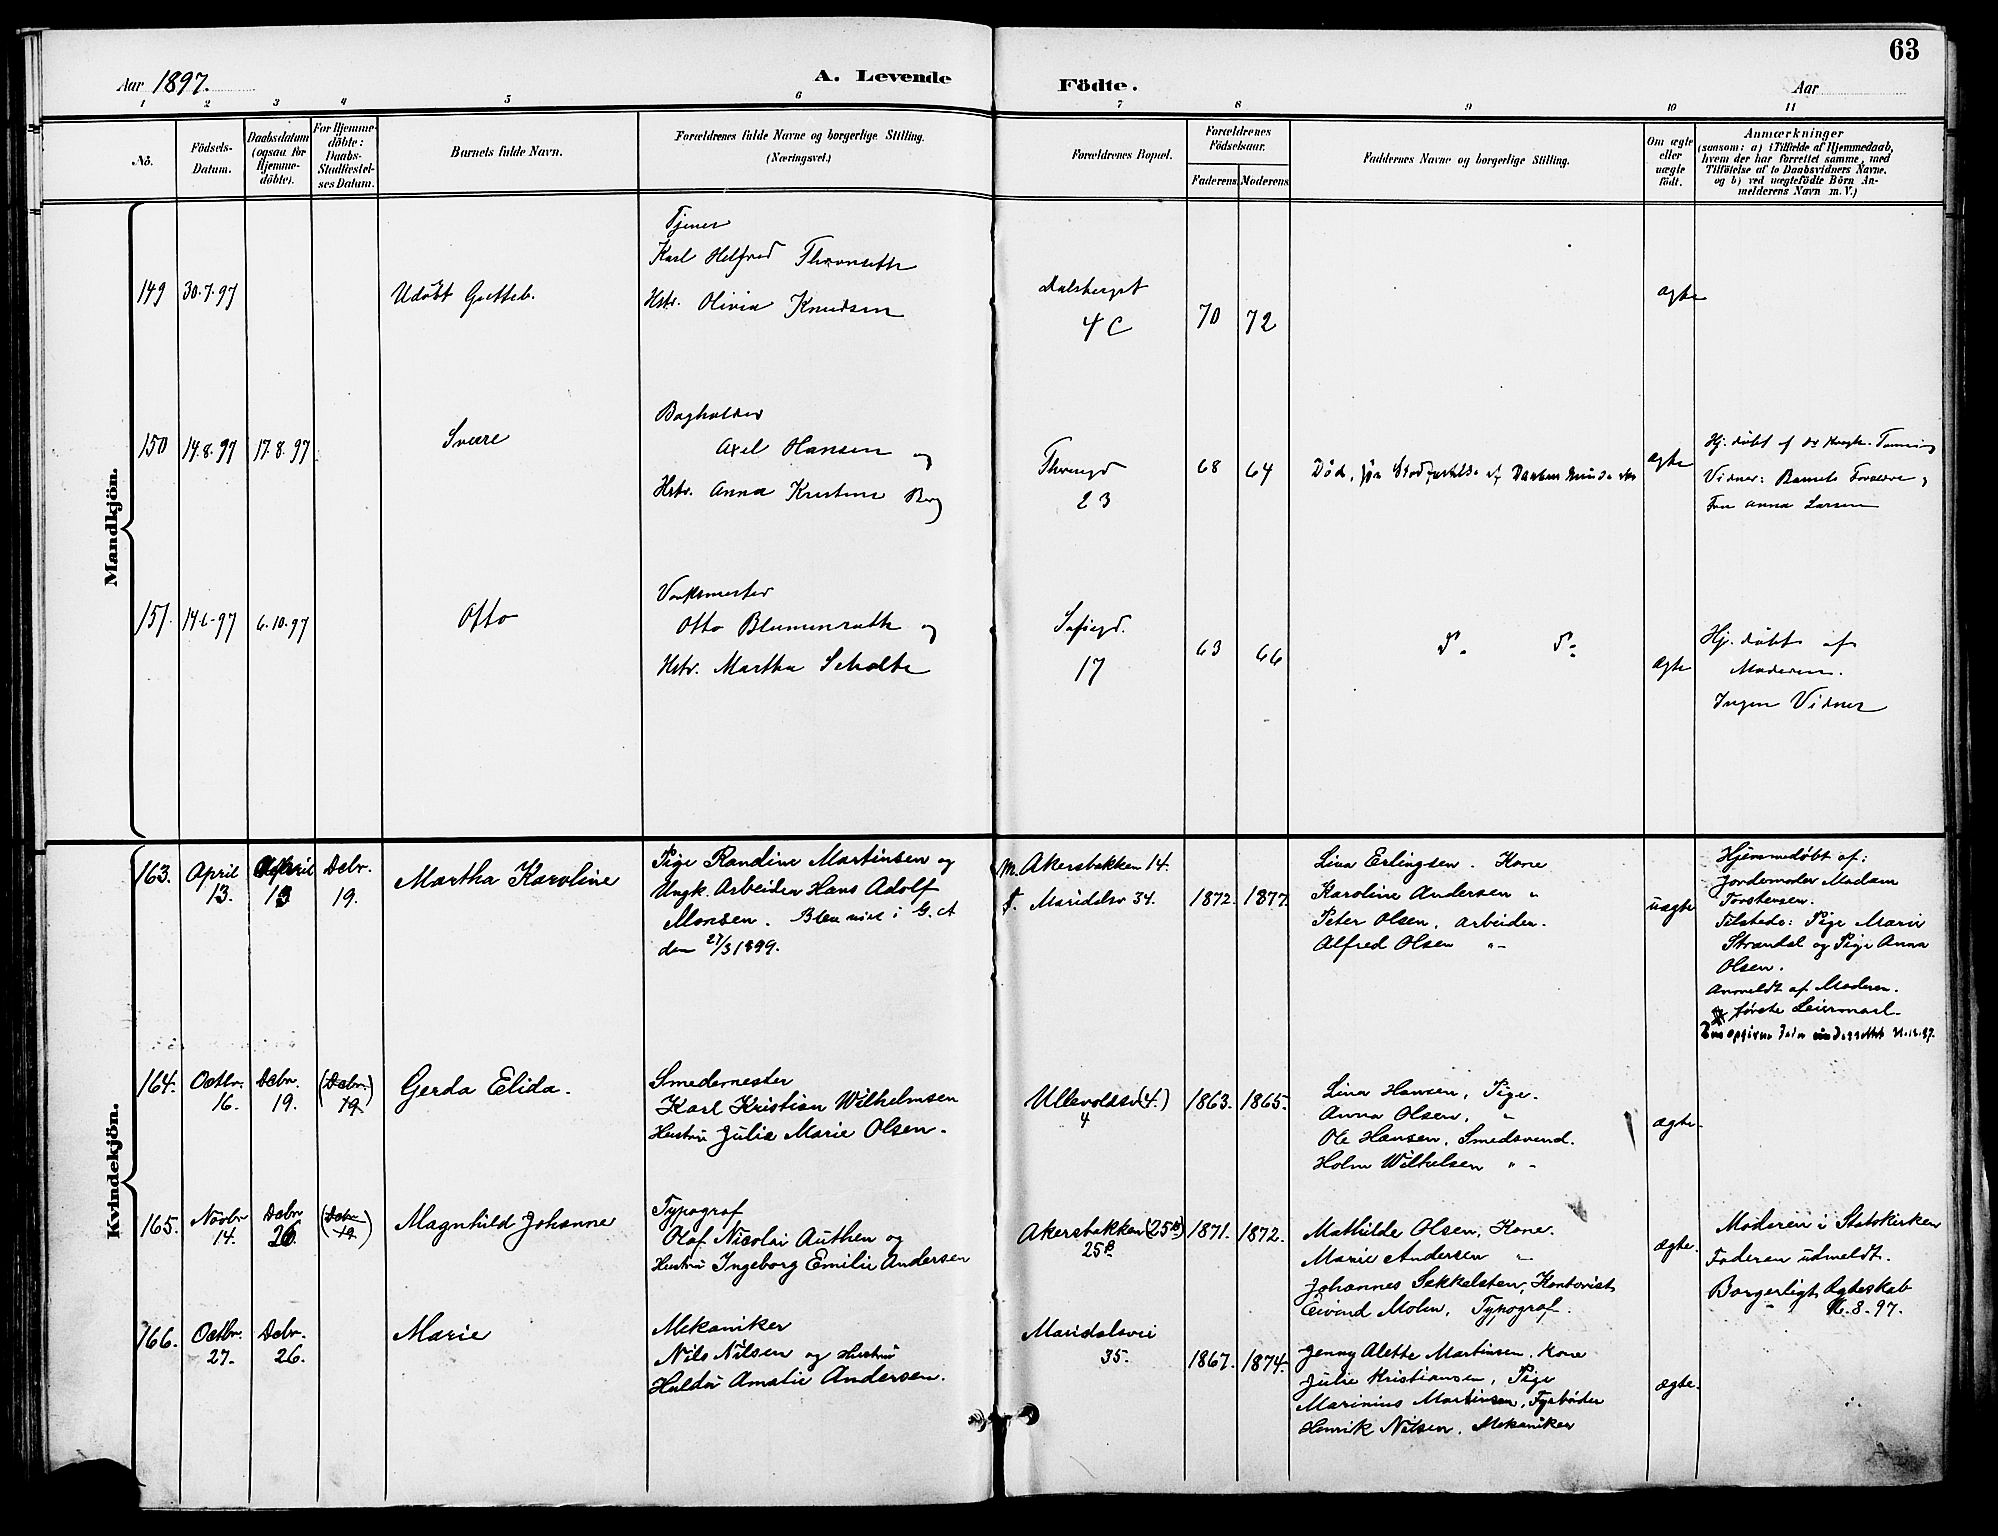 63
Aar 1897.
A. Levende Födte.
Aar
1 2 3 4 5 6 7 8 9 10 11
No.
Födsels-
Datum.
Daabsdatum
(ogsaa for
Hjemme-
döbte).
For Hjemme-
döbte:
Daabs-
Stadfæstel-
ses Datum.
Barnets fulde Navn.
Forældrenes fulde Navne og borgerlige Stilling.
(Næringsvei.)
Forældrenes Bopæl.
Forældrenes
Födselsaar.
Faderens. Moderens.
Faddernes Navne og borgerlige Stilling.
Om ægte
eller
uægte
födt.
Anmærkninger
(saasom: a) i Tilfælde af Hjemmedaab,
hvem der har forrettet samme, med
Tilföielse af to Daabsvidners Navne.
og b) ved uægtefödte Börn An-
melderens Navn m. V.)
Mandkjön.
149
30.7.97
Udøbt Gutteb.
Tjener
Karl Helfred Thronseth
Hstr. Olivia Knudsen
Dalsberget
4 C
70
72
ægte
150
14.8.97
17.8.97
Sverre
Bogholder
Axel Hansen og
Hstr. Anna Kristine Berg
Throngd
23
68
64
Død, før Stadfæstelse af Daaben
ægte
Hj. døbt af
Vidner: Barnets Forældre og
Fru Anna Larsen
151.
14.6.97
6.10.97
Otto
Værksmester
Otto Blumenrath og
Hstr. Martha Scholte
Sofiegd.
17
63
66
ægte
Hj. døbt af
Moderen.
Ingen Vidner
Kvindekjön.
163.
April
13.
April
13
Debr.
19.
Martha Karoline
Pige Randine Martinsen og
Ungk. Arbeider Hans Adolf
Monsen. Blev viet i G. A
den 27/3 1899.
M. Akersbakken 14.
F. Maridalsv 34.
1872.
1877.
Lina Erlingsen. Kone
Karoline Andersen "
Peter Olsen, arbeider.
Alfred Olsen "-
uægte
Hjemmedøbt af:
Jordemoder Madam
Torstensen.
Tilstede: Pige Marie
Strandal og Pige Anna
Olsen.
Anmeldt af Moderen.
første Leiermaal.
164.
Octbr.
16.
Debr.
19.
(Debr.)
19.
Gerda Elida.
Smedemester
Karl Kristian Wilhelmsen
Hustru Julie Marie Olsen.
Ullevoldsv (4.)
4
1863.
1865.
Lina Hansen, Pige.
Anna Olsen, "
Ole Hansen, Smedsvend.
Holm Wilhelsen "-
ægte.
165.
Novbr
14.
Debr
26.
(Debr
19)
Magnhild Johanne
Typograf
Olaf Nicolai Authen og
Hustru Ingeborg Emilie Andersen
Akersbakken (25B)
25B.
1871.
1872.
Mathilde Olsen, Kone.
Marie Andersen "
Johannes Sekkelsten, Kontorist
Eivind Molin, Typograf.
ægte.
Moderen i Statskirken
Faderen udmeldt.
Borgerligt Ægteskab
16.8.97.
166.
Octbr.
27.
Debr.
26.
Marie
Mekaniker
Nils Nilsen og Hustru
Hulda Amalie Andersen.
Maridalsvei
35.
1867.
1874.
Jenny Alette Martinsen, Kone
Julie Kristiansen, Pige
Marinius Martinsen, Fyrbøder
Henrik Nilsen, Mekaniker
ægte.